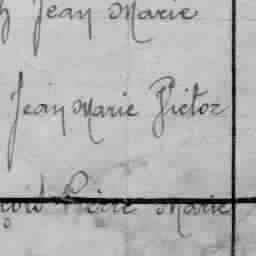 Jean Marie
Jean Marie Victor
Pierre Marie